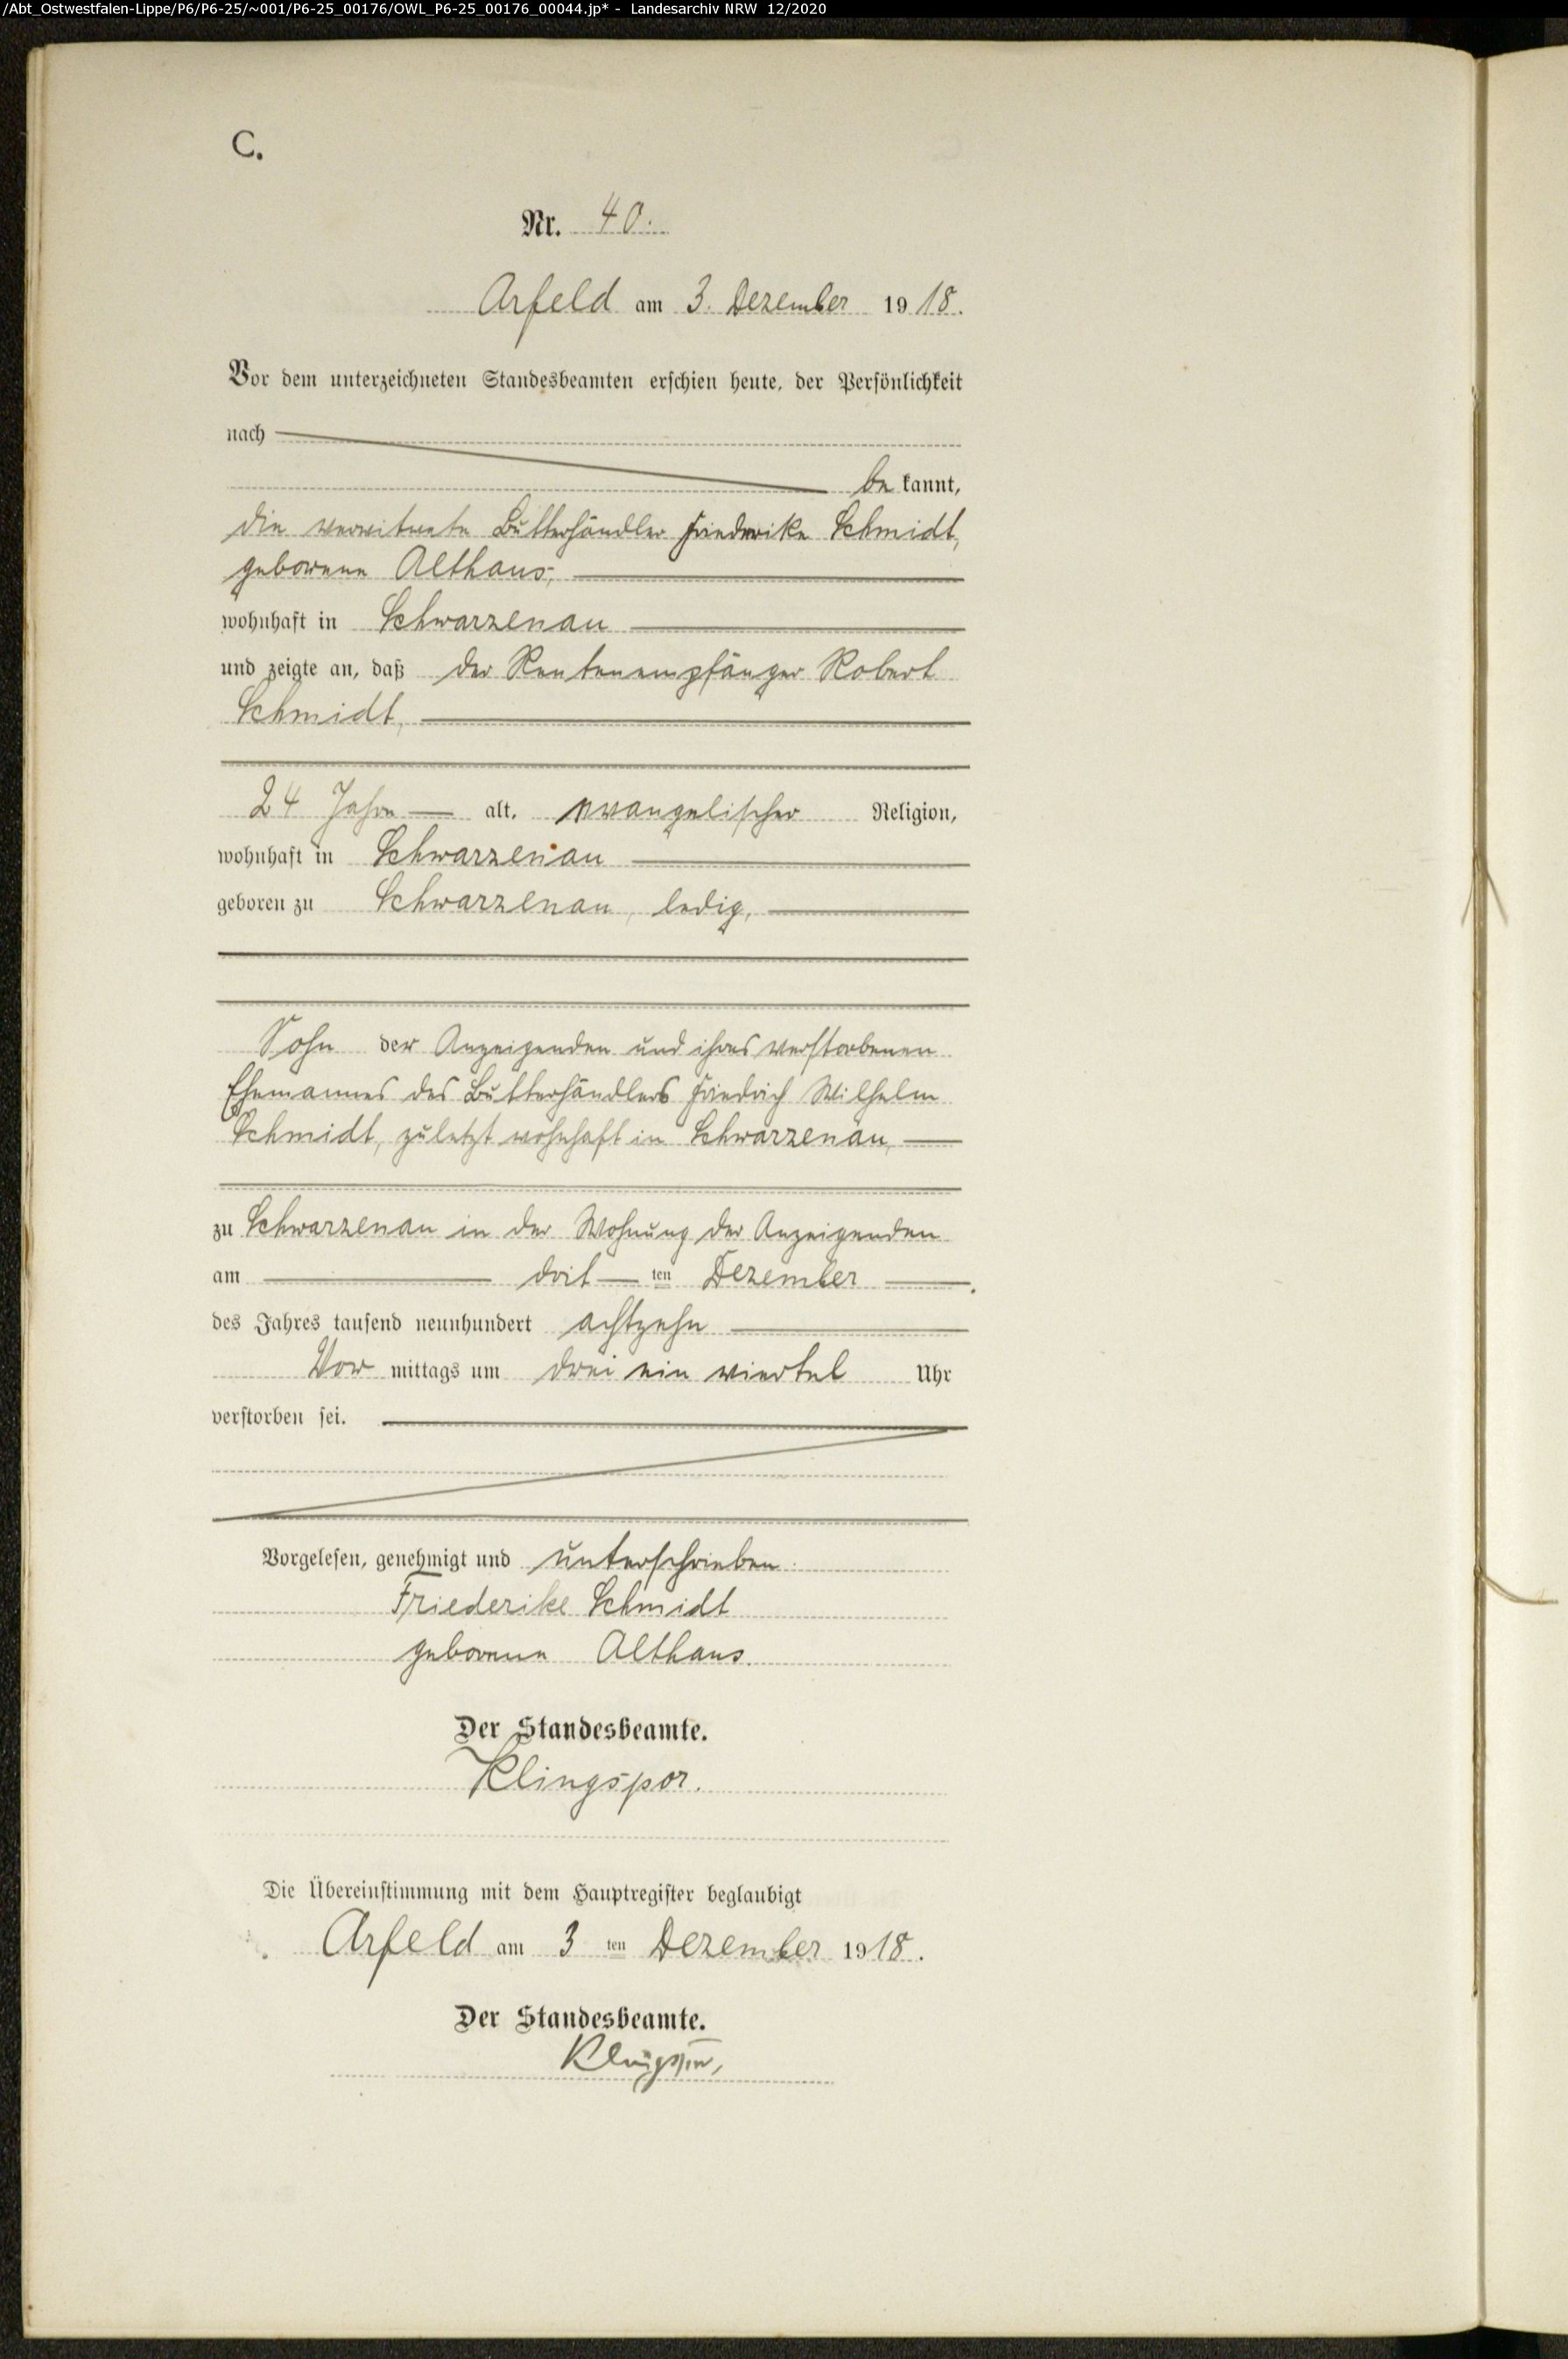 /Abt_Ostwestfalen-Lippe/P6/P6-25/~001/P6-25_00176/OWL_P6-25_00176_00044.jp* - Landesarchiv NRW 12/2020
C.
Nr. 40.
Arfeld am 3. Dezember 1918.
Vor dem unterzeichneten Standesbeamten erschien heute, der Persönlichkeit
nach
be kannt,
die verwitwete Butterhändler Friederike Schmidt,
geborene Althaus,
wohnhaft in Schwarzenau
und zeigte an, daß der Rentenempfänger Robert
Schmidt,
24 Jahre alt, evangelischer Religion,
wohnhaft in Schwarzenau
geboren zu Schwarzenau, ledig,
Sohn der Anzeigenden und ihres verstorbenen
Ehemannes des Butterhändlers Friedrich Wilhelm
Schmidt, zuletzt wohnhaft in Schwarzenau,
zu Schwarzenau in der Wohnung der Anzeigenden
am drit ten Dezember
des Jahres tausend neunhundert achtzehn
Vor mittags um drei ein viertel Uhr
verstorben sei.
Vorgelesen, genehmigt und unterschrieben.
Friederike Schmidt
geborene Althaus.
Der Standesbeamte.
Klingspor.
Die Übereinstimmung mit dem Hauptregister beglaubigt
Arfeld am 3 ten Dezember 1918.
Der Standesbeamte.
Klingspor,